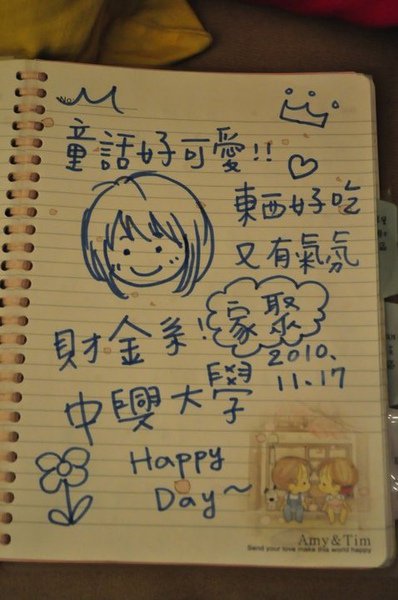 童話好可愛!!
東西好吃
又有氣氛
財金系!
家聚
2010.
11.17
中興大學
Happy
Day~
Amy & Tim
Send your love make this world happy